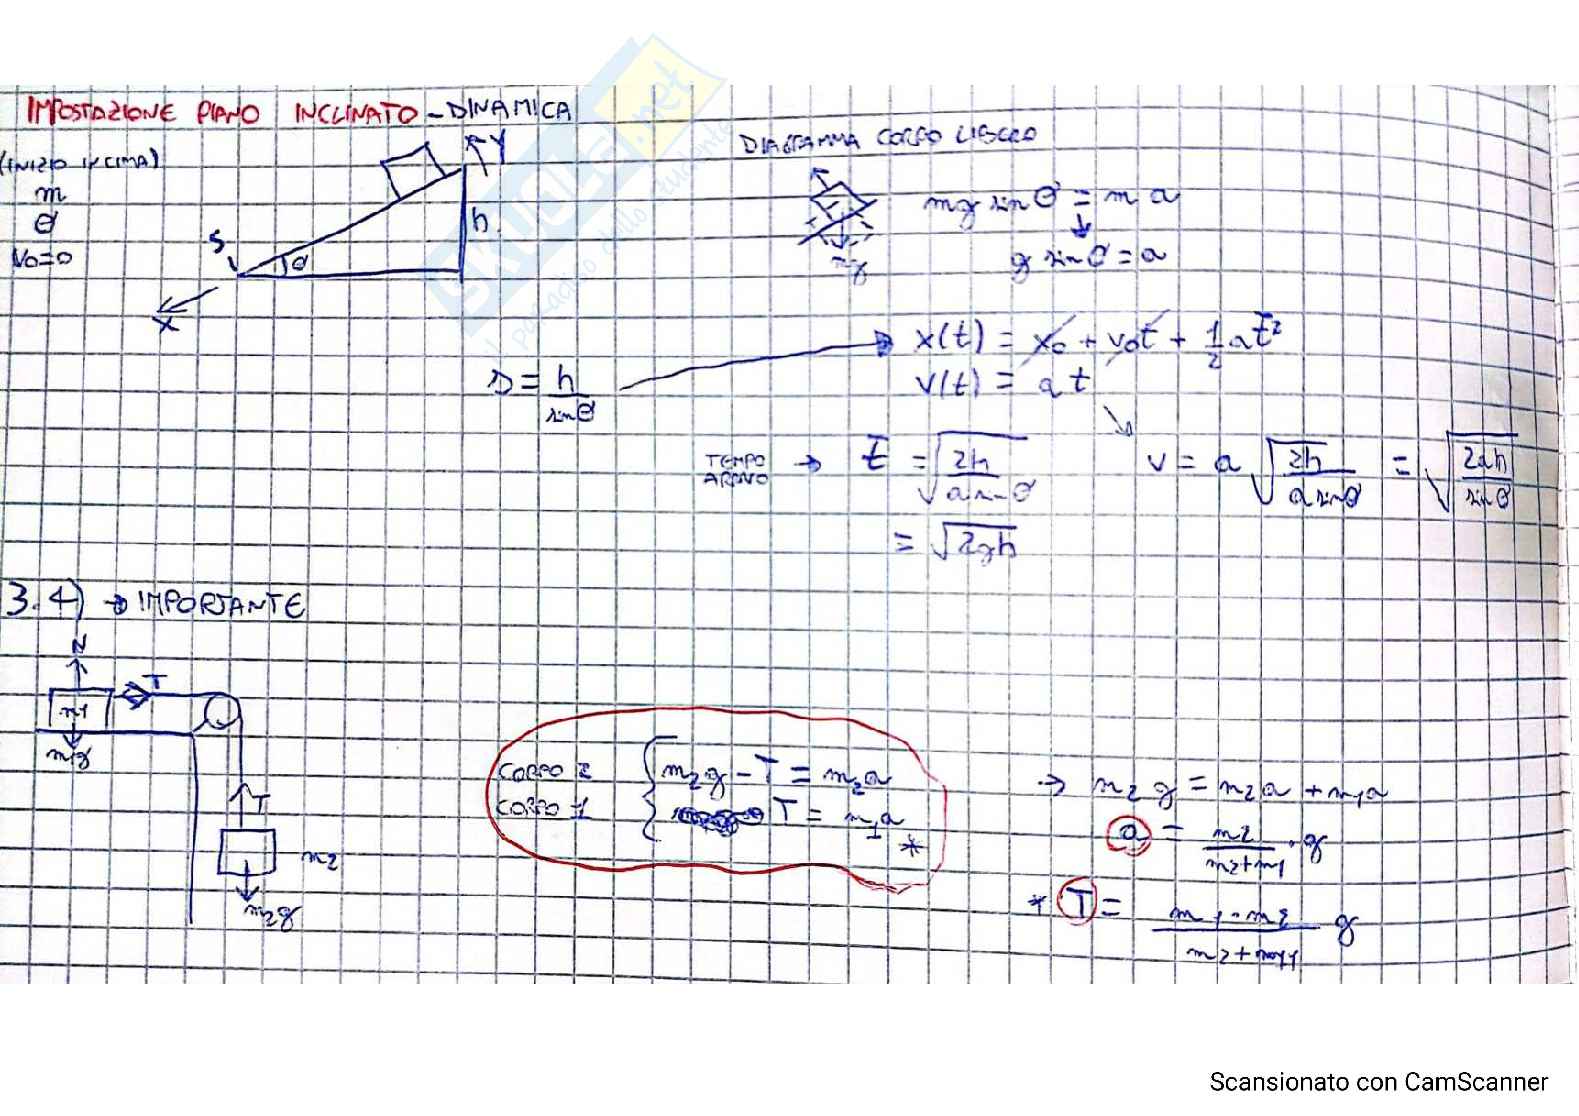 IMPOSTAZIONE PIANO INCLINATO - DINAMICA
(INIZIO IN CIMA)
m
θ
V₀=0
Y
h
S
θ
X
DIAGRAMMA CORPO LIBERO
mg
mg sinθ = m a
g sinθ = a
s = h / sinθ
x(t) = x₀ + v₀t + 1/2 a t²
v(t) = a t
TEMPO ARRIVO → t = √(2h / a sinθ)
v = a √(2h / a sinθ) = √(2ah / sinθ)
= √2gh
3.4) → IMPORTANTE
N
T
m1
m1g
T
m2
m2g
CORPO 2 { m₂g - T = m₂a
CORPO 1 { T = m₁a *
→ m₂g = m₂a + m₁a
a = m2 / (m2+m1) · g
* T = m1·m2 / (m2+m1) g
Scansionato con CamScanner
SKUOLA.net
il paradiso dello studente